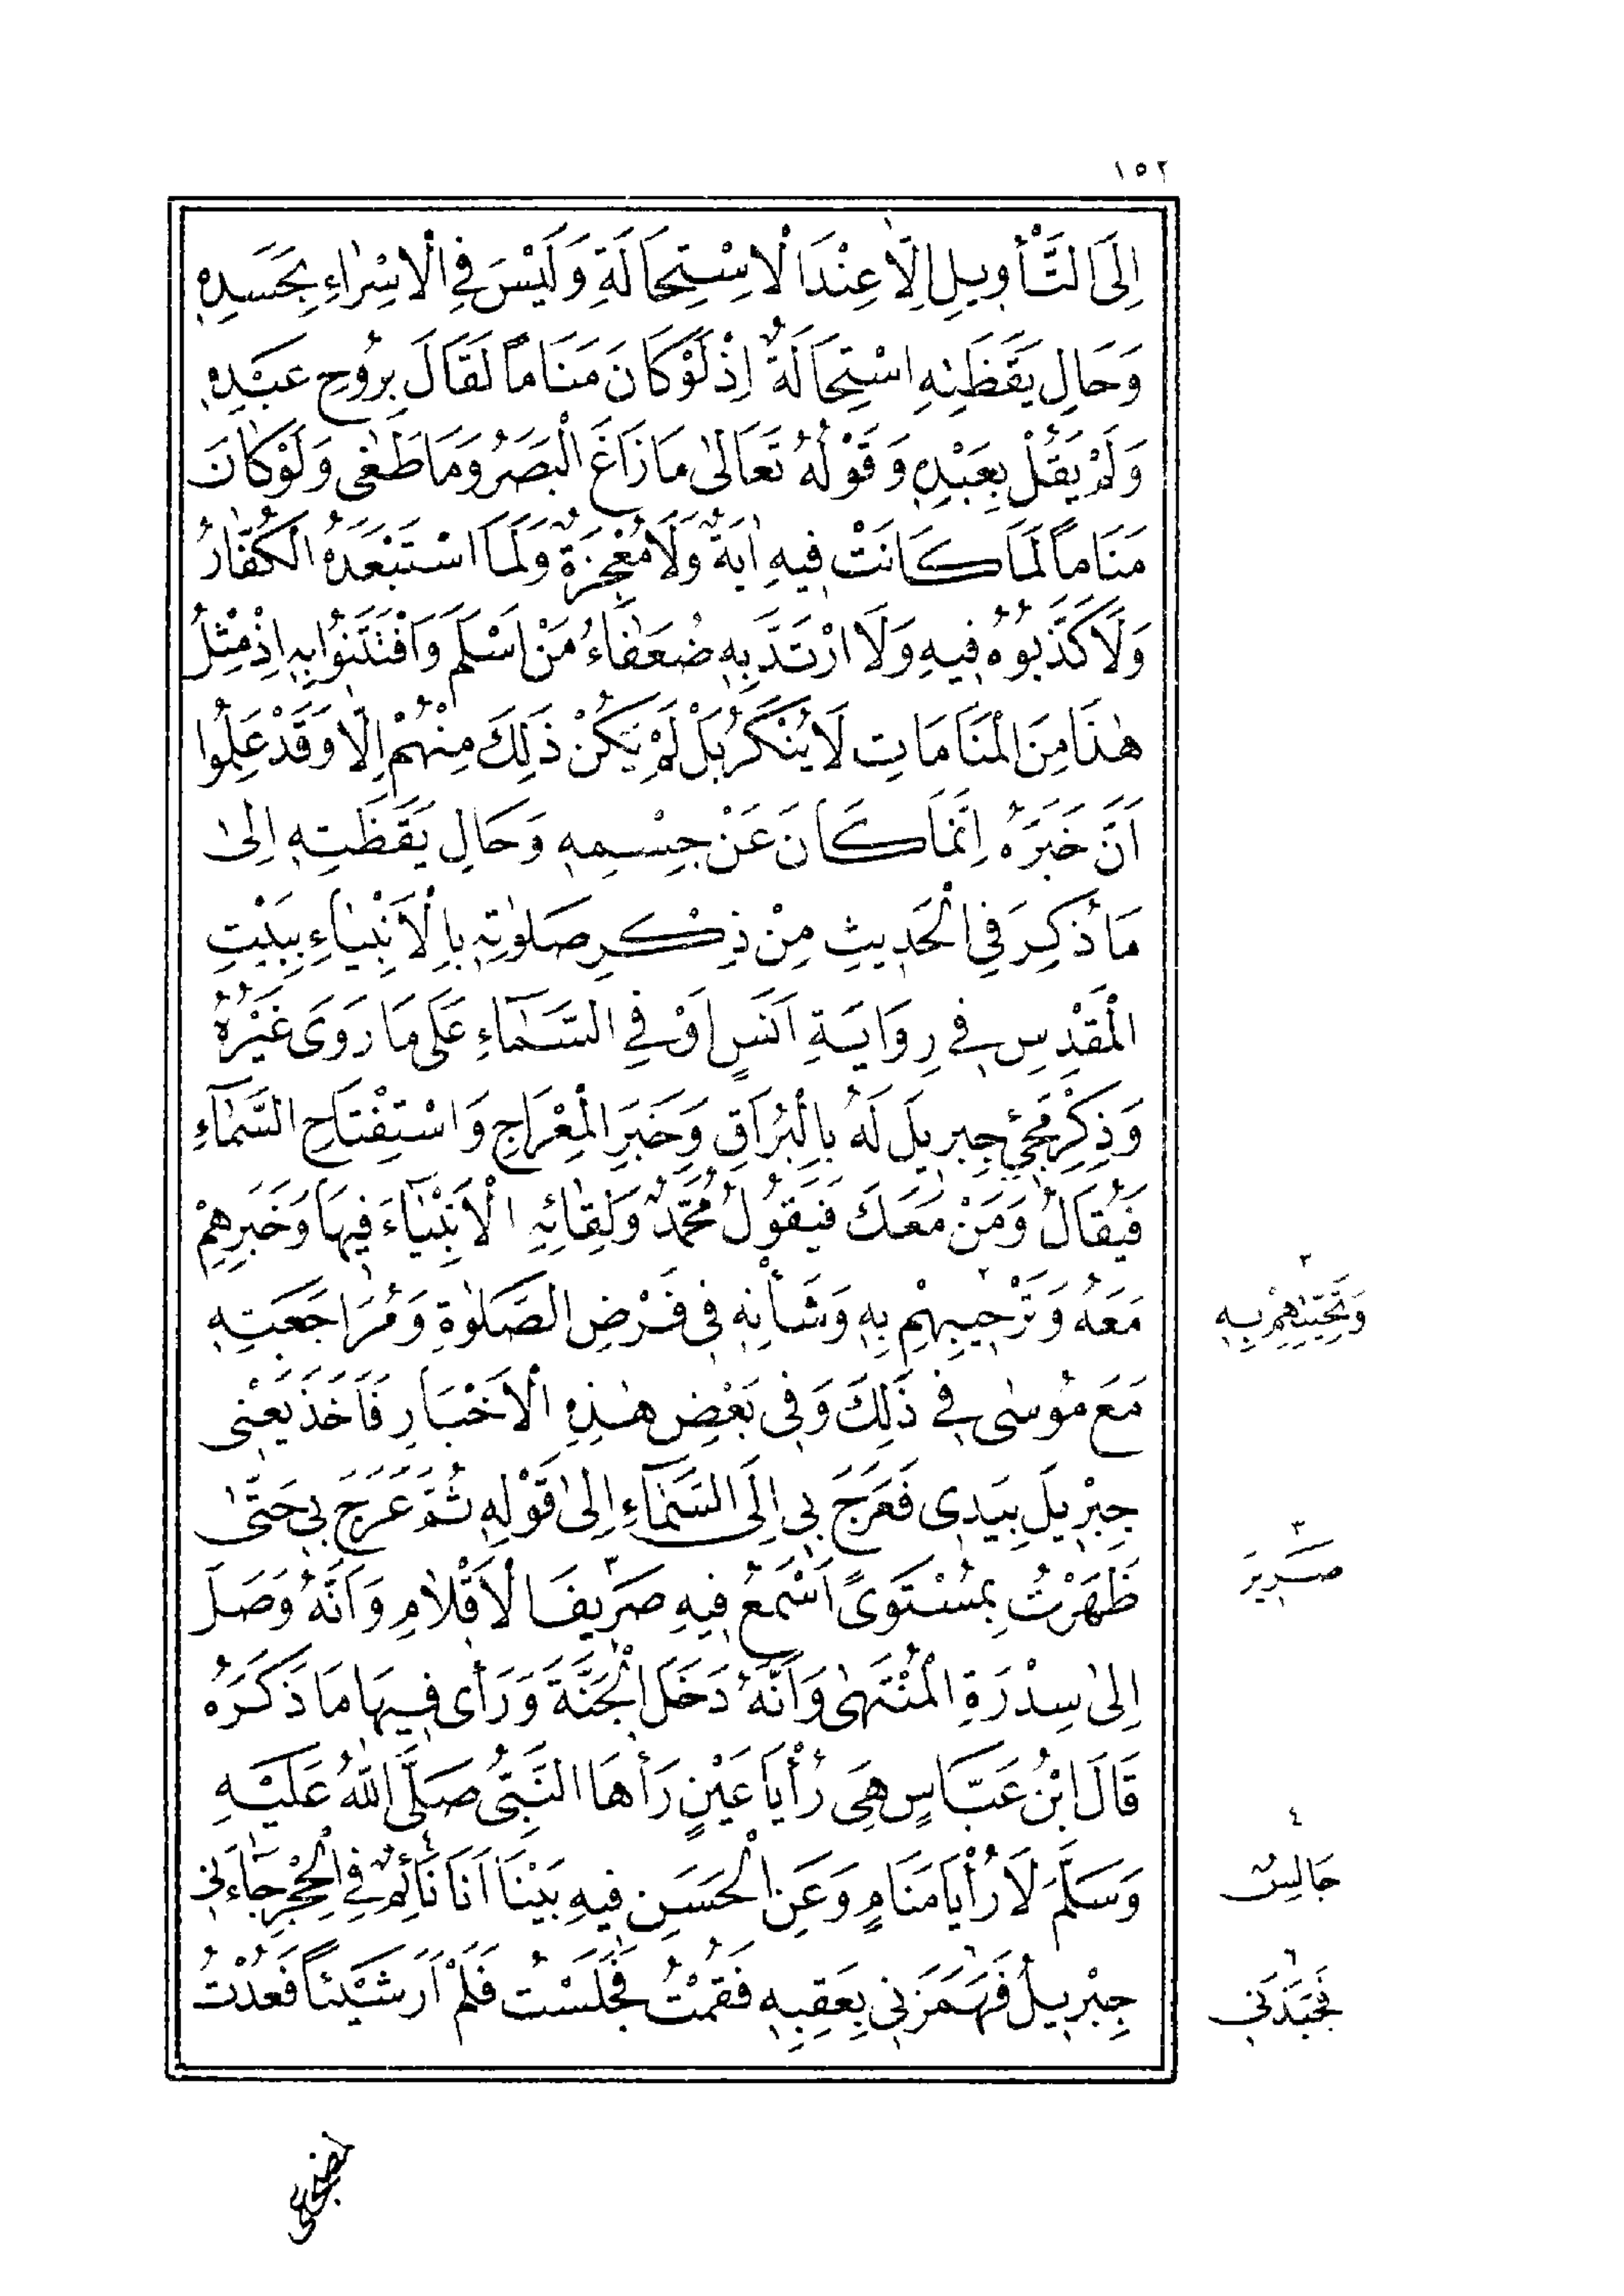 ١٥٢
اِلَى التَّأْوِيلِ اِلَّا عِنْدَ الْاِسْتِحَالَةِ وَلَيْسَ فِى الْاِسْرَاءِ بِجَسَدِهِ
وَحَالِ يَقَظَتِهِ اسْتِحَالَةٌ اِذْ لَوْ كَانَ مَنَاماً لَقَالَ بِرُوحِ عَبْدِهِ
وَلَمْ يَقُلْ بِعَبْدِهِ وَقَوْلُهُ تَعَالٰى مَا زَاغَ الْبَصَرُ وَمَا طَغٰى وَلَوْ كَانَ
مَنَاماً لَمَا كَانَتْ فِيهِ اٰيَةٌ وَلَا مُعْجِزَةٌ وَلَمَا اسْتَبْعَدَهُ الْكُفَّارُ
وَلَا كَذَّبُوهُ فِيهِ وَلَا ارْتَدَّ بِهِ ضُعَفَاءُ مَنْ اَسْلَمَ وَافْتَتَنُوا بِهِ اِذْ مِثْلُ
هٰذَا مِنَ الْمَنَامَاتِ لَا يُنْكَرُ بَلْ لَمْ يَكُنْ ذٰلِكَ مِنْهُمْ اِلَّا وَقَدْ عَلِمُوا
اَنَّ خَبَرَهُ اِنَّمَا كَانَ عَنْ جِسْمِهِ وَحَالِ يَقَظَتِهِ اِلٰى
مَا ذُكِرَ فِى الْحَدِيثِ مِنْ ذِكْرِ صَلٰوتِهِ بِالْاَنْبِيَاءِ بِبَيْتِ
الْمَقْدِسِ فِى رِوَايَةِ اَنَسٍ اَوْ فِى السَّمَاءِ عَلَى مَا رَوَى غَيْرُهُ
وَذِكْرِ مَجِيْءِ جِبْرِيلَ لَهُ بِالْبُرَاقِ وَخَبَرِ الْمِعْرَاجِ وَاسْتِفْتَاحِ السَّمَاءِ
فَيُقَالُ وَمَنْ مَعَكَ فَيَقُولُ مُحَمَّدٌ وَلِقَائِهِ الْاَنْبِيَاءَ فِيهَا وَخَبَرِهِمْ
مَعَهُ وَتَرْحِيبِهِمْ ٢ بِهِ وَشَأْنِهِ فِى فَرْضِ الصَّلٰوةِ وَمُرَاجَعَتِهِ
مَعَ مُوسٰى فِى ذٰلِكَ وَفِى بَعْضِ هٰذِهِ الْاَخْبَارِ فَاَخَذَ يَعْنِى
جِبْرِيلَ بِيَدِى فَعَرَجَ بِى اِلَى السَّمَاءِ اِلٰى قَوْلِهِ ثُمَّ عَرَجَ بِى حَتّٰى
ظَهَرْتُ بِمُسْتَوًى اَسْمَعُ فِيهِ صَرِيفَ ٣ الْاَقْلَامِ وَاَنَّهُ وَصَلَ
اِلٰى سِدْرَةِ الْمُنْتَهٰى وَاَنَّهُ دَخَلَ الْجَنَّةَ وَرَأٰى فِيهَا مَا ذَكَرَهُ
قَالَ ابْنُ عَبَّاسٍ هِىَ رُأْيَا عَيْنٍ رَأٰهَا النَّبِىُّ صَلَّى اللهُ عَلَيْهِ
وَسَلَّمَ لَا رُأْيَا مَنَامٍ وَعَنِ الْحَسَنِ فِيهِ بَيْنَا اَنَا نَائِمٌ ٤ فِى الْحِجْرِ جَاءَنِى
جِبْرِيلُ فَهَمَزَنِى ٦ بِعَقِبِهِ فَقُمْتُ فَجَلَسْتُ فَلَمْ اَرَ شَيْئاً فَعُدْتُ
٢
وَتَحِيَّتِهِمْ بِهِ
٣
صَرِيرَ
٤
جَالِسٌ
٦
فَجَبَذَنِى
لمضجعى